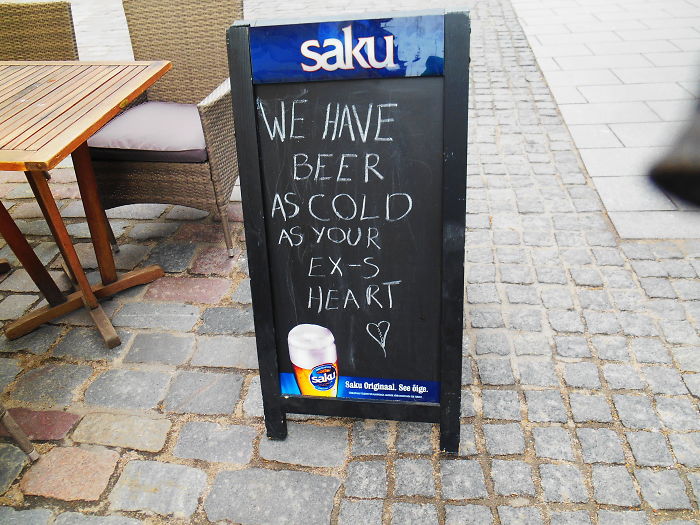 saku
WE HAVE
BEER
AS COLD
AS YOUR
EX-S
HEART
saku
Saku Originaal. See õige.